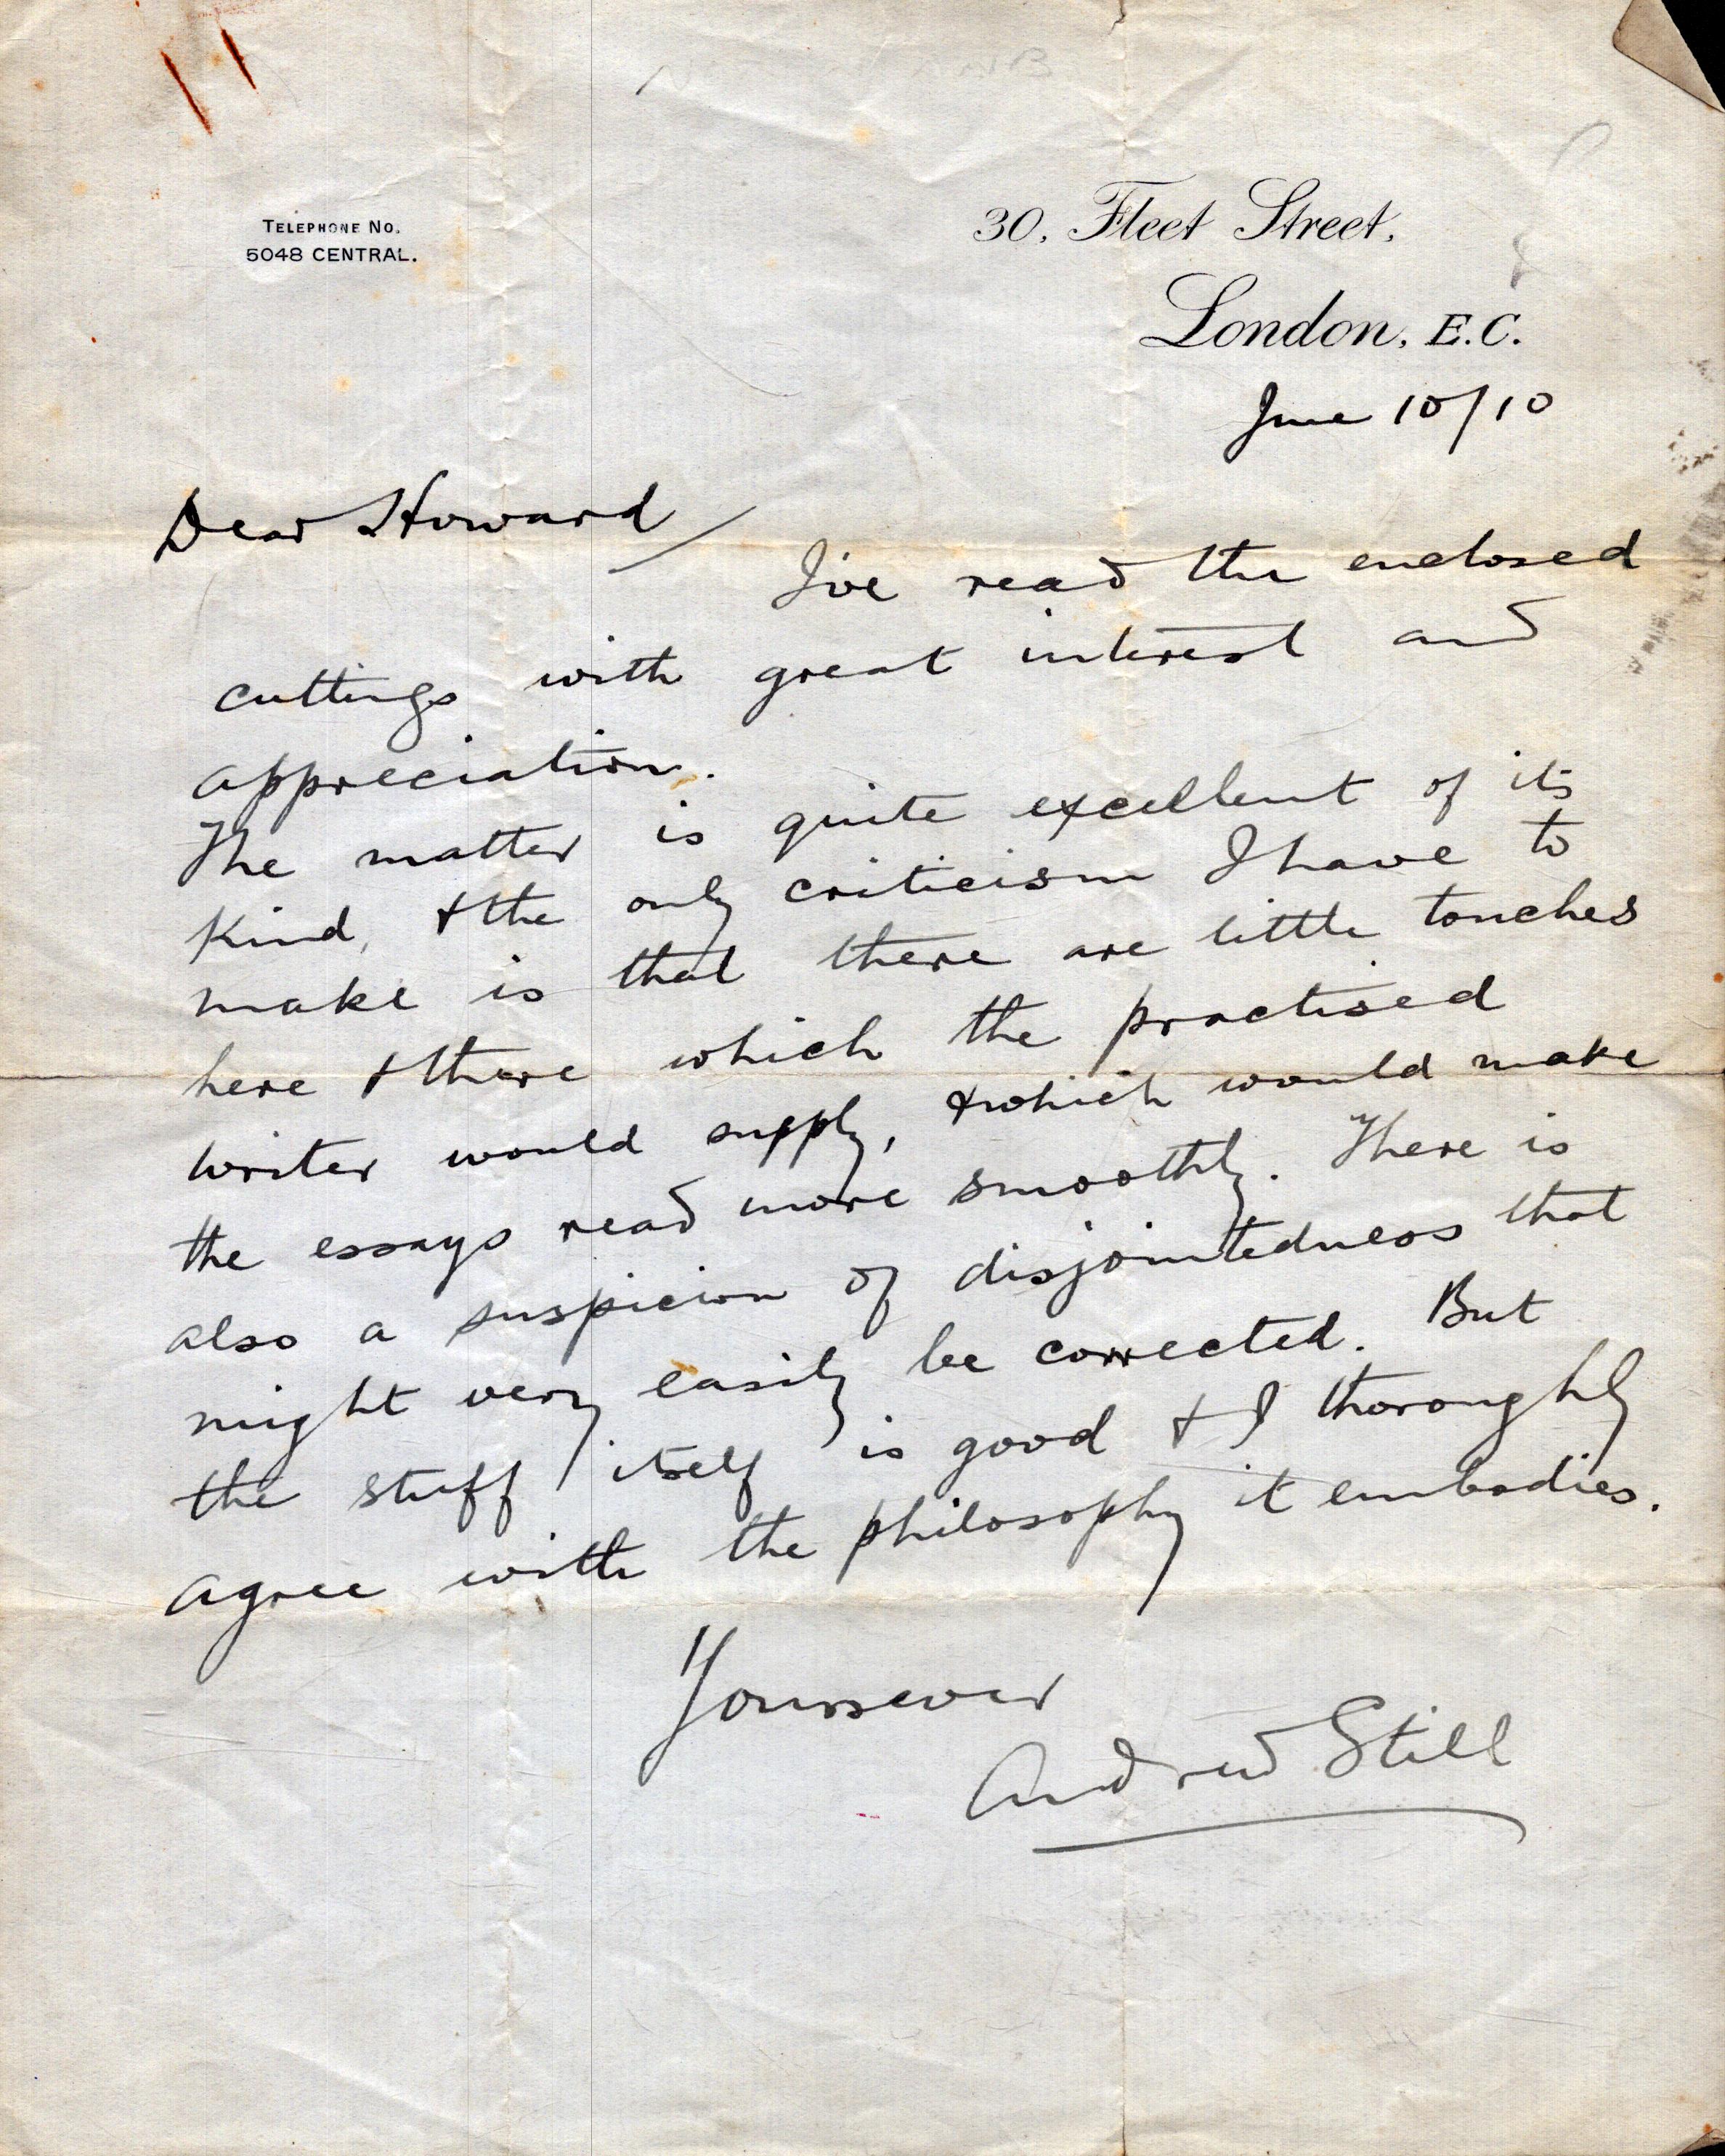 TELEPHONE NO.
5048 CENTRAL.
30, Fleet Street,
London, E.C.
June 10/10
Dear Howard
I've read the enclosed
cuttings with great interest and
appreciation.
The matter is quite excellent of its
kind, & the only criticism I have to
make is that there are little touches
here & there which the practised
writer would supply, & which would make
the essays read more smoothly. There is
also a suspicion of disjointedness that
might very easily be corrected. But
the stuff itself is good & I thoroughly
agree with the philosophy it embodies.
Yours ever
Andrew Still